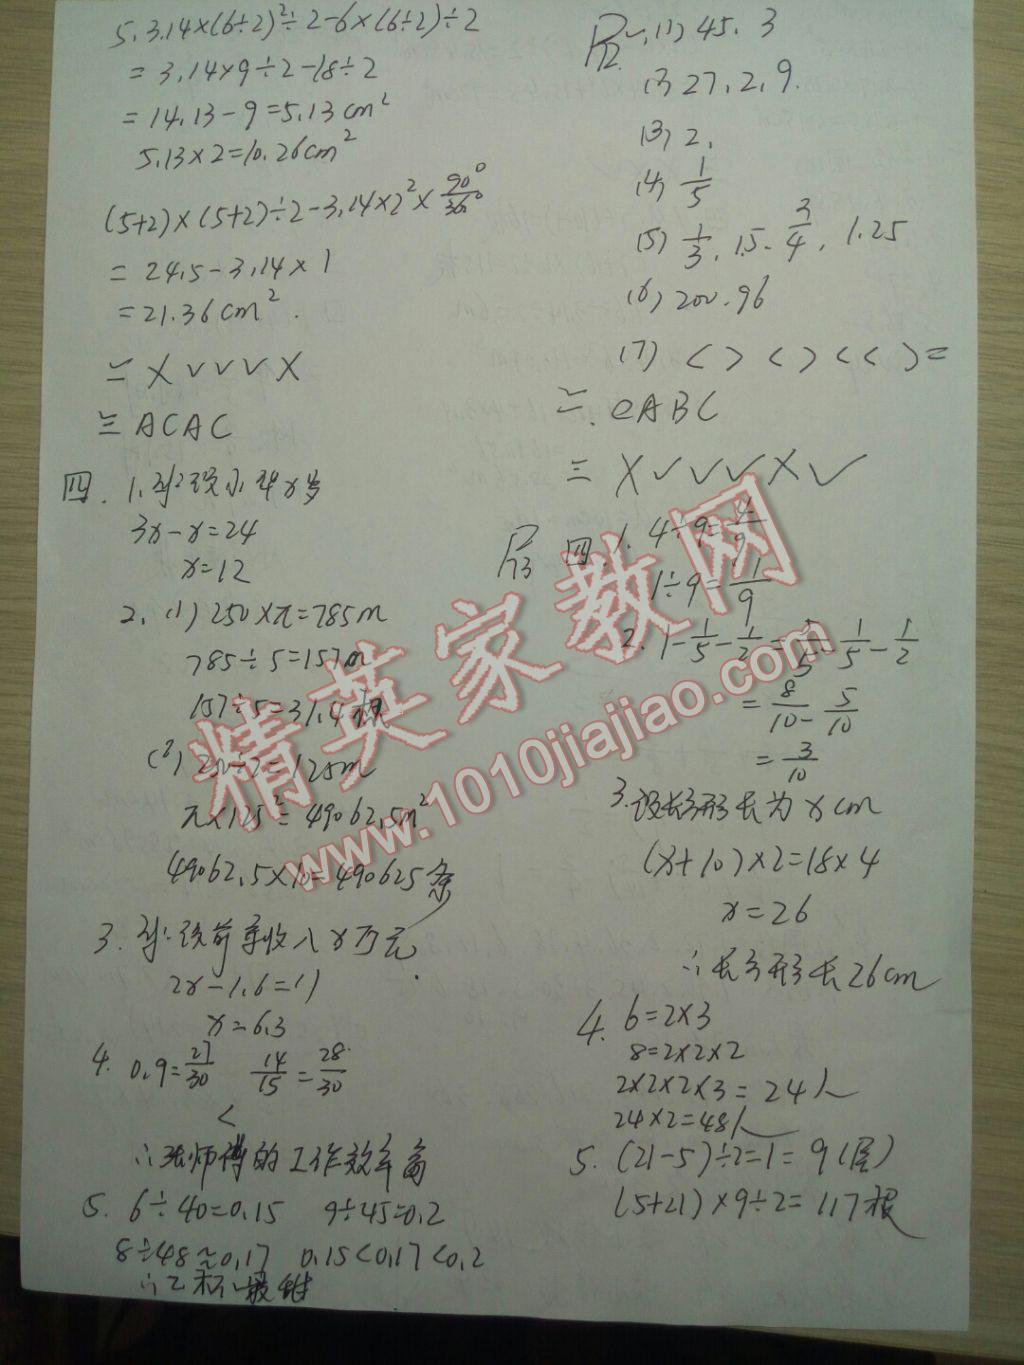 5. 3.14×(6÷2)²÷2-6×(6÷2)÷2
=3.14×9÷2-18÷2
=14.13-9=5.13cm²
5.13×2=10.26cm²
(5+2)×(5+2)÷2-3.14×2²×90°/360°
=24.5-3.14×1
=21.36cm².
二 X √ √ √ X
三 ACAC
四. 1. 解:设小华x岁
3x-x=24
x=12
2. (1) 250×π=785m
785÷5=157m
157÷5=31.4棵
(2) 250÷2=125m
π×125²=49062.5m²
49062.5×10=490625条
3. 解:设前年收入x万元.
2x-1.6=11
x=6.3
4. 0.9=27/30 14/15=28/30
<
∴张师傅的工作效率高
5. 6÷40=0.15 9÷45=0.2
8÷48≈0.17 0.15<0.17<0.2
∴乙杯最甜
P12 一, (1) 45. 3
(2) 27, 2, 9.
(3) 2,
(4) 1/5
(5) 1/3, 15. 3/4, 1.25
(6) 200.96
(7) < > < > < < > =
二. CABC
三 X √ √ √ X √
P13 四. 1. 4÷9=4/9
1÷9=1/9
2. 1-1/5-1/2=5/5-1/5-1/2
=8/10-5/10
=3/10
3. 设长方形长为xcm
(x+10)×2=18×4
x=26
∴长方形长26cm
4. 6=2×3
8=2×2×2
2×2×2×3=24人
24×2=48人
5. (21-5)÷2=1=9(层)
(5+21)×9÷2=117根
精英家教网
www.1010jiajiao.com